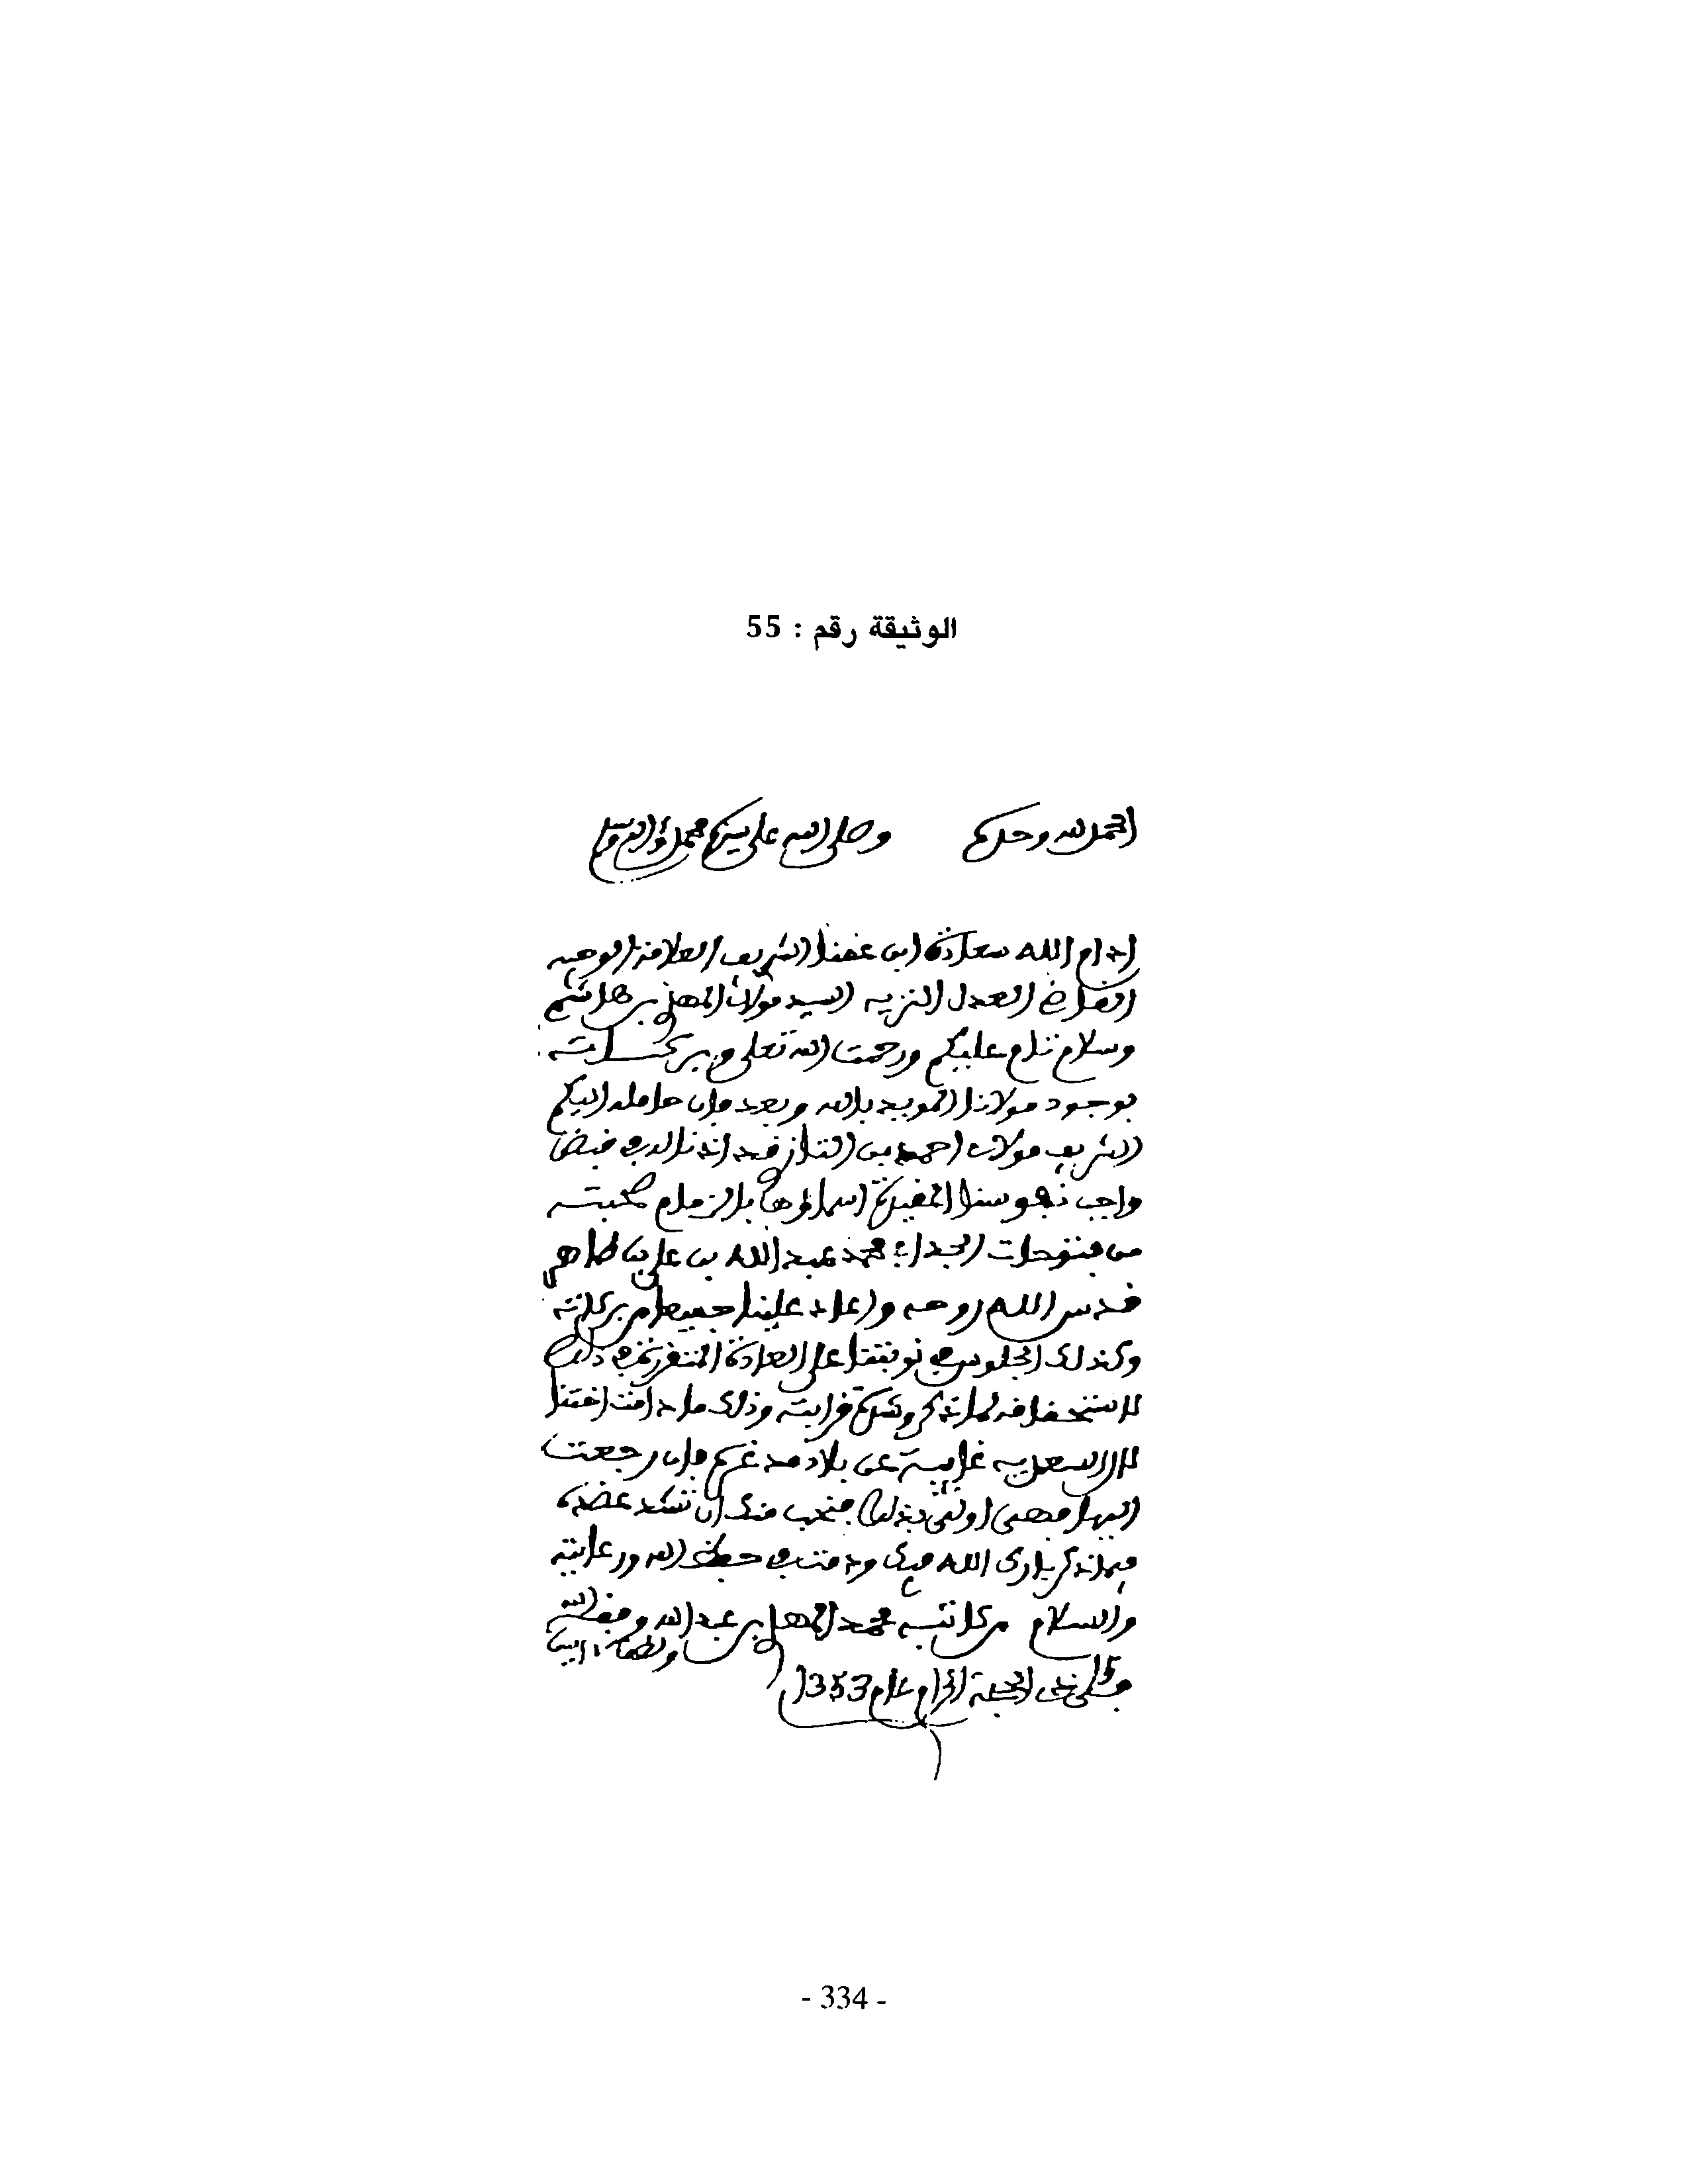 الوثيقة رقم : 55
الحمد لله وحده وصلى الله على سيدنا محمد وآله وسلم
ادام الله سعادة ابن عمنا الشريف العلامة الوجيه
القاضي العدل النزيه السيد مولاي المهدي بن هاشم
وسلام تام عليكم ورحمت الله تعلى وبركاته
بوجود مولانا المويد بالله وبعد فان حامله اليكم
الشريف مولاي احمد بن التاز قد اذنا له في قبض
واجب نفوسنا المقيدة اسماؤها بالزمام صحبته
من فتوحات الجد محمد عبد الله بن علي بن طاهر
قدس الله روحه واعاد علينا جميعا من بركاته
وكذلك الجلوس في نوبتنا على العادة المتقررة في ذلك
لاستحقاقه لما ذكر وشدة قرابته وذلك ما دامت اختنا
للا السعدية غايبة عن بلاد مدغرة فان رجعت
اليها فهي اولى بذلك فنحب منك ان تشد عضده
فيما ذكر بارك الله فيك ودمت في حفظ الله ورعايته
والسلام من كاتبه محمد المهدي بن عبد الله وفقه الله
ذي الحجة الحرام عام 1353
- 334 -